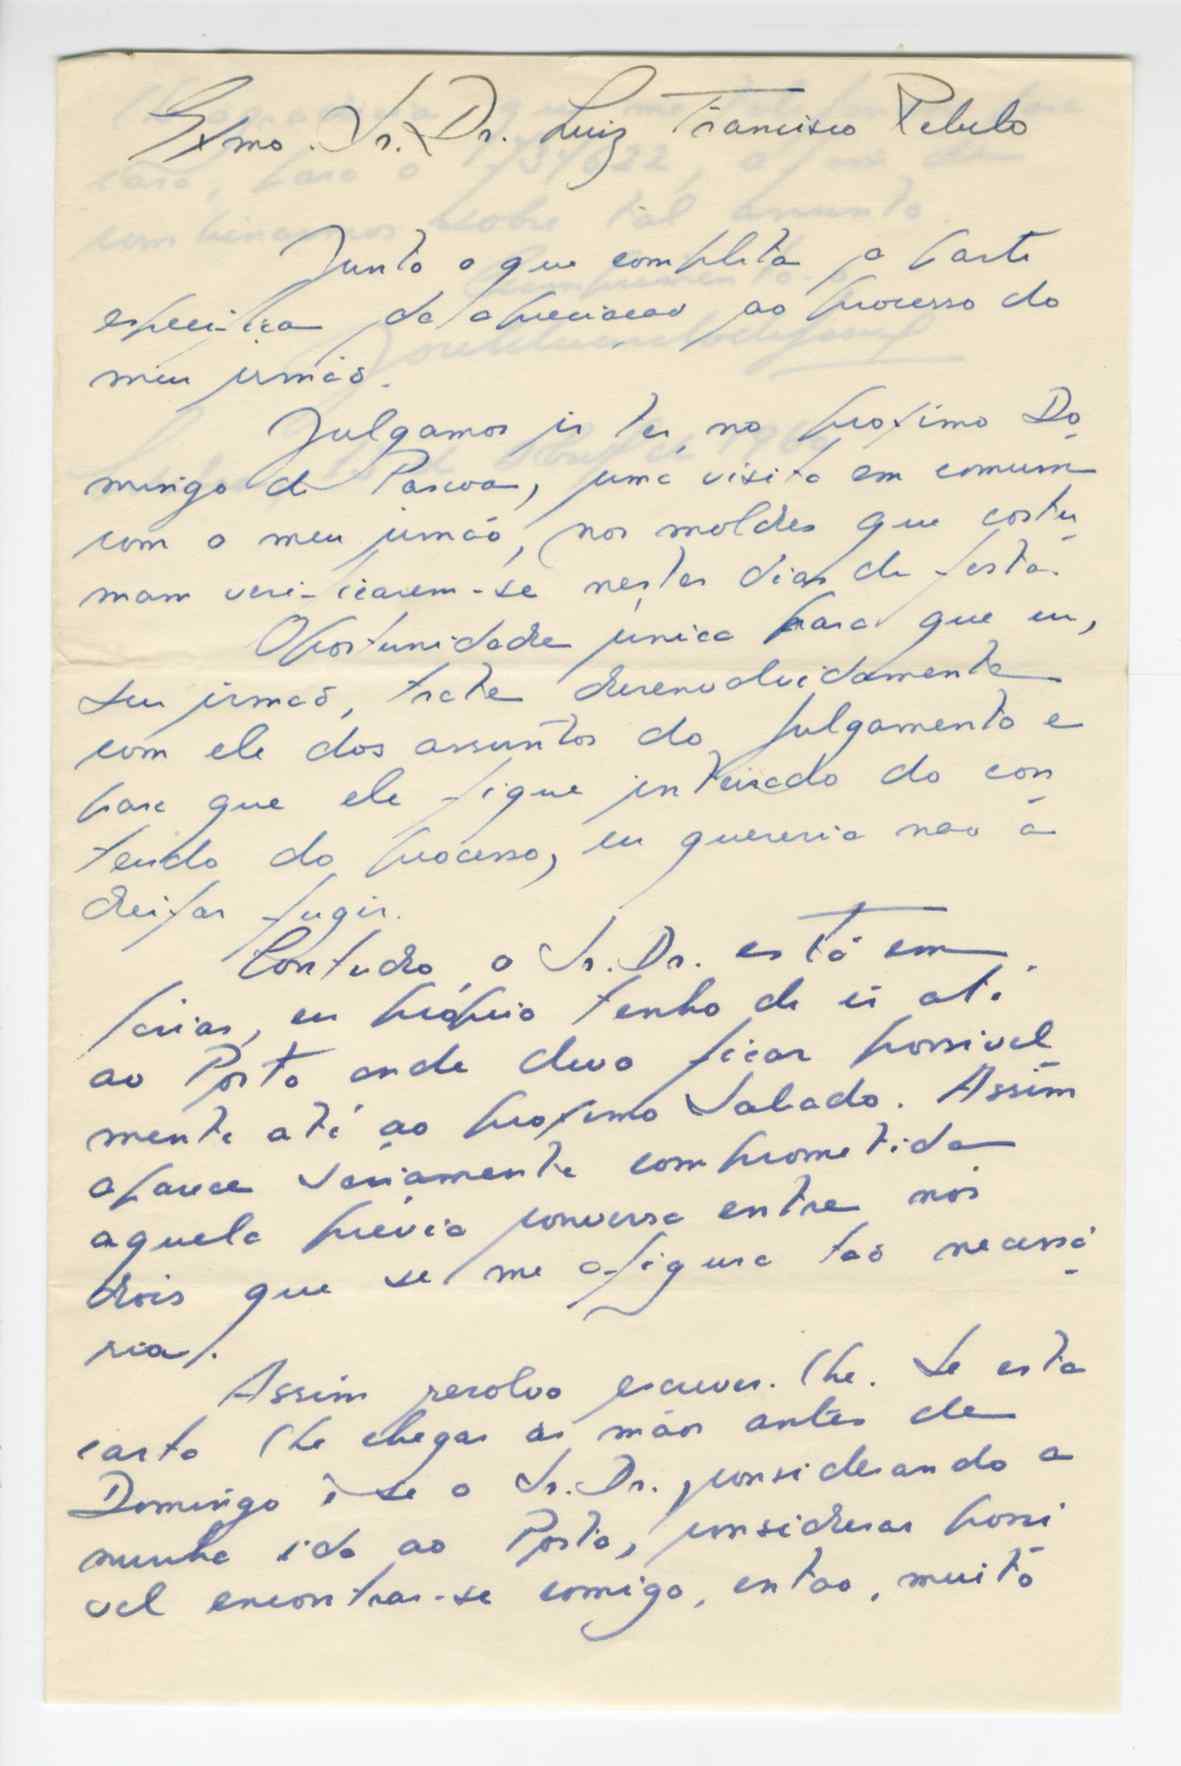 Exmo. Sr. Dr. Luiz Francisco Rebelo
Junto o que completa a parte
especifica da apreciação ao processo do
meu irmão.
Julgamos ir ter, no proximo Do
mingo de Pascoa, uma visita em comum
com o meu irmão, nos moldes que costu
mam verificarem-se nestes dias de festa.
Oportunidade única para que eu,
seu irmão, trate desenvolvidamente
com ele dos assuntos do julgamento e
para que ele fique inteirado do con
teudo do processo, eu quereria não a
deixar fugir.
Contudo, o Sr. Dr. está em
férias, eu próprio tenho de ir até
ao Porto onde devo ficar possivel
mente até ao proximo Sabado. Assim
aparece sériamente comprometida
aquela prévia conversa entre nós
dois que se me afigura tão necessá
ria.
Assim resolvo escrever-lhe. Se esta
carta lhe chegar ás mãos antes de
Domingo e se o Sr. Dr., considerando a
minha ida ao Porto, considerar possi
vel encontrar-se comigo, então, muito